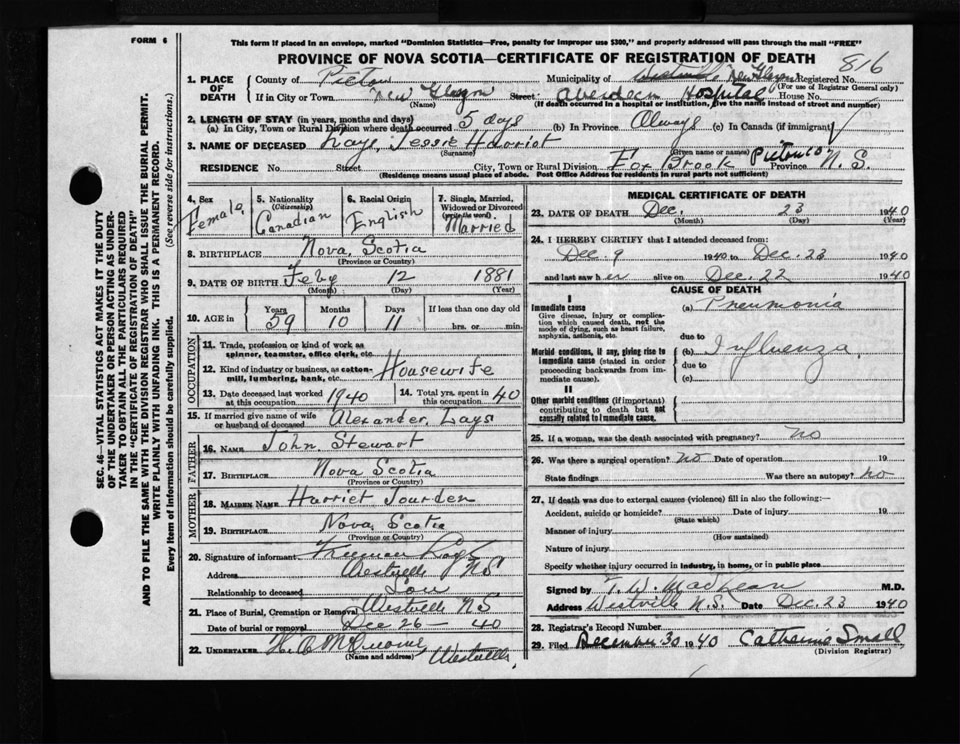 FORM 6
This form if placed in an envelope, marked "Dominion Statistics—Free, penalty for improper use $300," and properly addressed will pass through the mail "FREE"
PROVINCE OF NOVA SCOTIA—CERTIFICATE OF REGISTRATION OF DEATH
816
1. PLACE OF DEATH County of Pictou Municipality of Westville New Glasgow Registered No.
(For use of Registrar General only)
If in City or Town New Glasgow Street Aberdeen Hospital House No.
(Name) (If death occurred in a hospital or institution, give the name instead of street and number)
2. LENGTH OF STAY (in years, months and days)
(a) In City, Town or Rural Division where death occurred 5 days (b) In Province Always (c) In Canada (if immigrant)
3. NAME OF DECEASED Lays, Jessie Harriet
(Surname) (Given name or names)
RESIDENCE No. Street City, Town or Rural Division Fox Brook Pictou Co Province N. S.
(Residence means usual place of abode. Post Office Address for residents in rural parts not sufficient)
4. Sex Female
5. Nationality (Citizenship) Canadian
6. Racial Origin English
7. Single, Married, Widowed or Divorced (write the word) Married
8. BIRTHPLACE Nova Scotia
(Province or Country)
9. DATE OF BIRTH Feby 12 1881
(Month) (Day) (Year)
10. AGE in Years 59 Months 10 Days 11 If less than one day old hrs. or min.
OCCUPATION
11. Trade, profession or kind of work as spinner, teamster, office clerk, etc.
12. Kind of industry or business, as cotton-mill, lumbering, bank, etc. Housewife
13. Date deceased last worked at this occupation 1940
14. Total yrs. spent in this occupation 40
15. If married give name of wife or husband of deceased Alexander Lays
FATHER
16. NAME John Stewart
17. BIRTHPLACE Nova Scotia
(Province or Country)
MOTHER
18. MAIDEN NAME Harriet Jourden
19. BIRTHPLACE Nova Scotia
(Province or Country)
20. Signature of informant Freeman Lays
Address Westville NS
Relationship to deceased Son
21. Place of Burial, Cremation or Removal Westville NS
Date of burial or removal Dec 26 — 40
22. UNDERTAKER Westville
(Name and address)
MEDICAL CERTIFICATE OF DEATH
23. DATE OF DEATH Dec. 23 1940
(Month) (Day) (Year)
24. I HEREBY CERTIFY that I attended deceased from:
Dec. 9 1940 to Dec. 23 1940
and last saw her alive on Dec. 22 1940
CAUSE OF DEATH
I
Immediate cause
Give disease, injury or complication which caused death, not the mode of dying, such as heart failure, asphyxia, asthenia, etc.
(a) Pneumonia
due to
Morbid conditions, if any, giving rise to immediate cause (stated in order proceeding backwards from immediate cause).
(b) Influenza
due to
(c)
II
Other morbid conditions (if important) contributing to death but not causally related to immediate cause.
25. If a woman, was the death associated with pregnancy? No
26. Was there a surgical operation? No Date of operation 19
State findings Was there an autopsy? No
27. If death was due to external causes (violence) fill in also the following:—
Accident, suicide or homicide? Date of injury 19
(State which)
Manner of injury
(How sustained)
Nature of injury
Specify whether injury occurred in industry, in home, or in public place
Signed by M.D.
Address Westville N.S. Date Dec. 23 1940
28. Registrar's Record Number
29. Filed December 30 1940 Catherine Small
(Division Registrar)
SEC. 46—VITAL STATISTICS ACT MAKES IT THE DUTY
OF THE UNDERTAKER OR PERSON ACTING AS UNDERTAKER
TO OBTAIN ALL THE PARTICULARS REQUIRED
IN THE "CERTIFICATE OF REGISTRATION OF DEATH"
AND TO FILE THE SAME WITH THE DIVISION REGISTRAR WHO SHALL ISSUE THE BURIAL PERMIT.
WRITE PLAINLY WITH UNFADING INK. THIS IS A PERMANENT RECORD.
Every item of information should be carefully supplied. (See reverse side for instructions.)